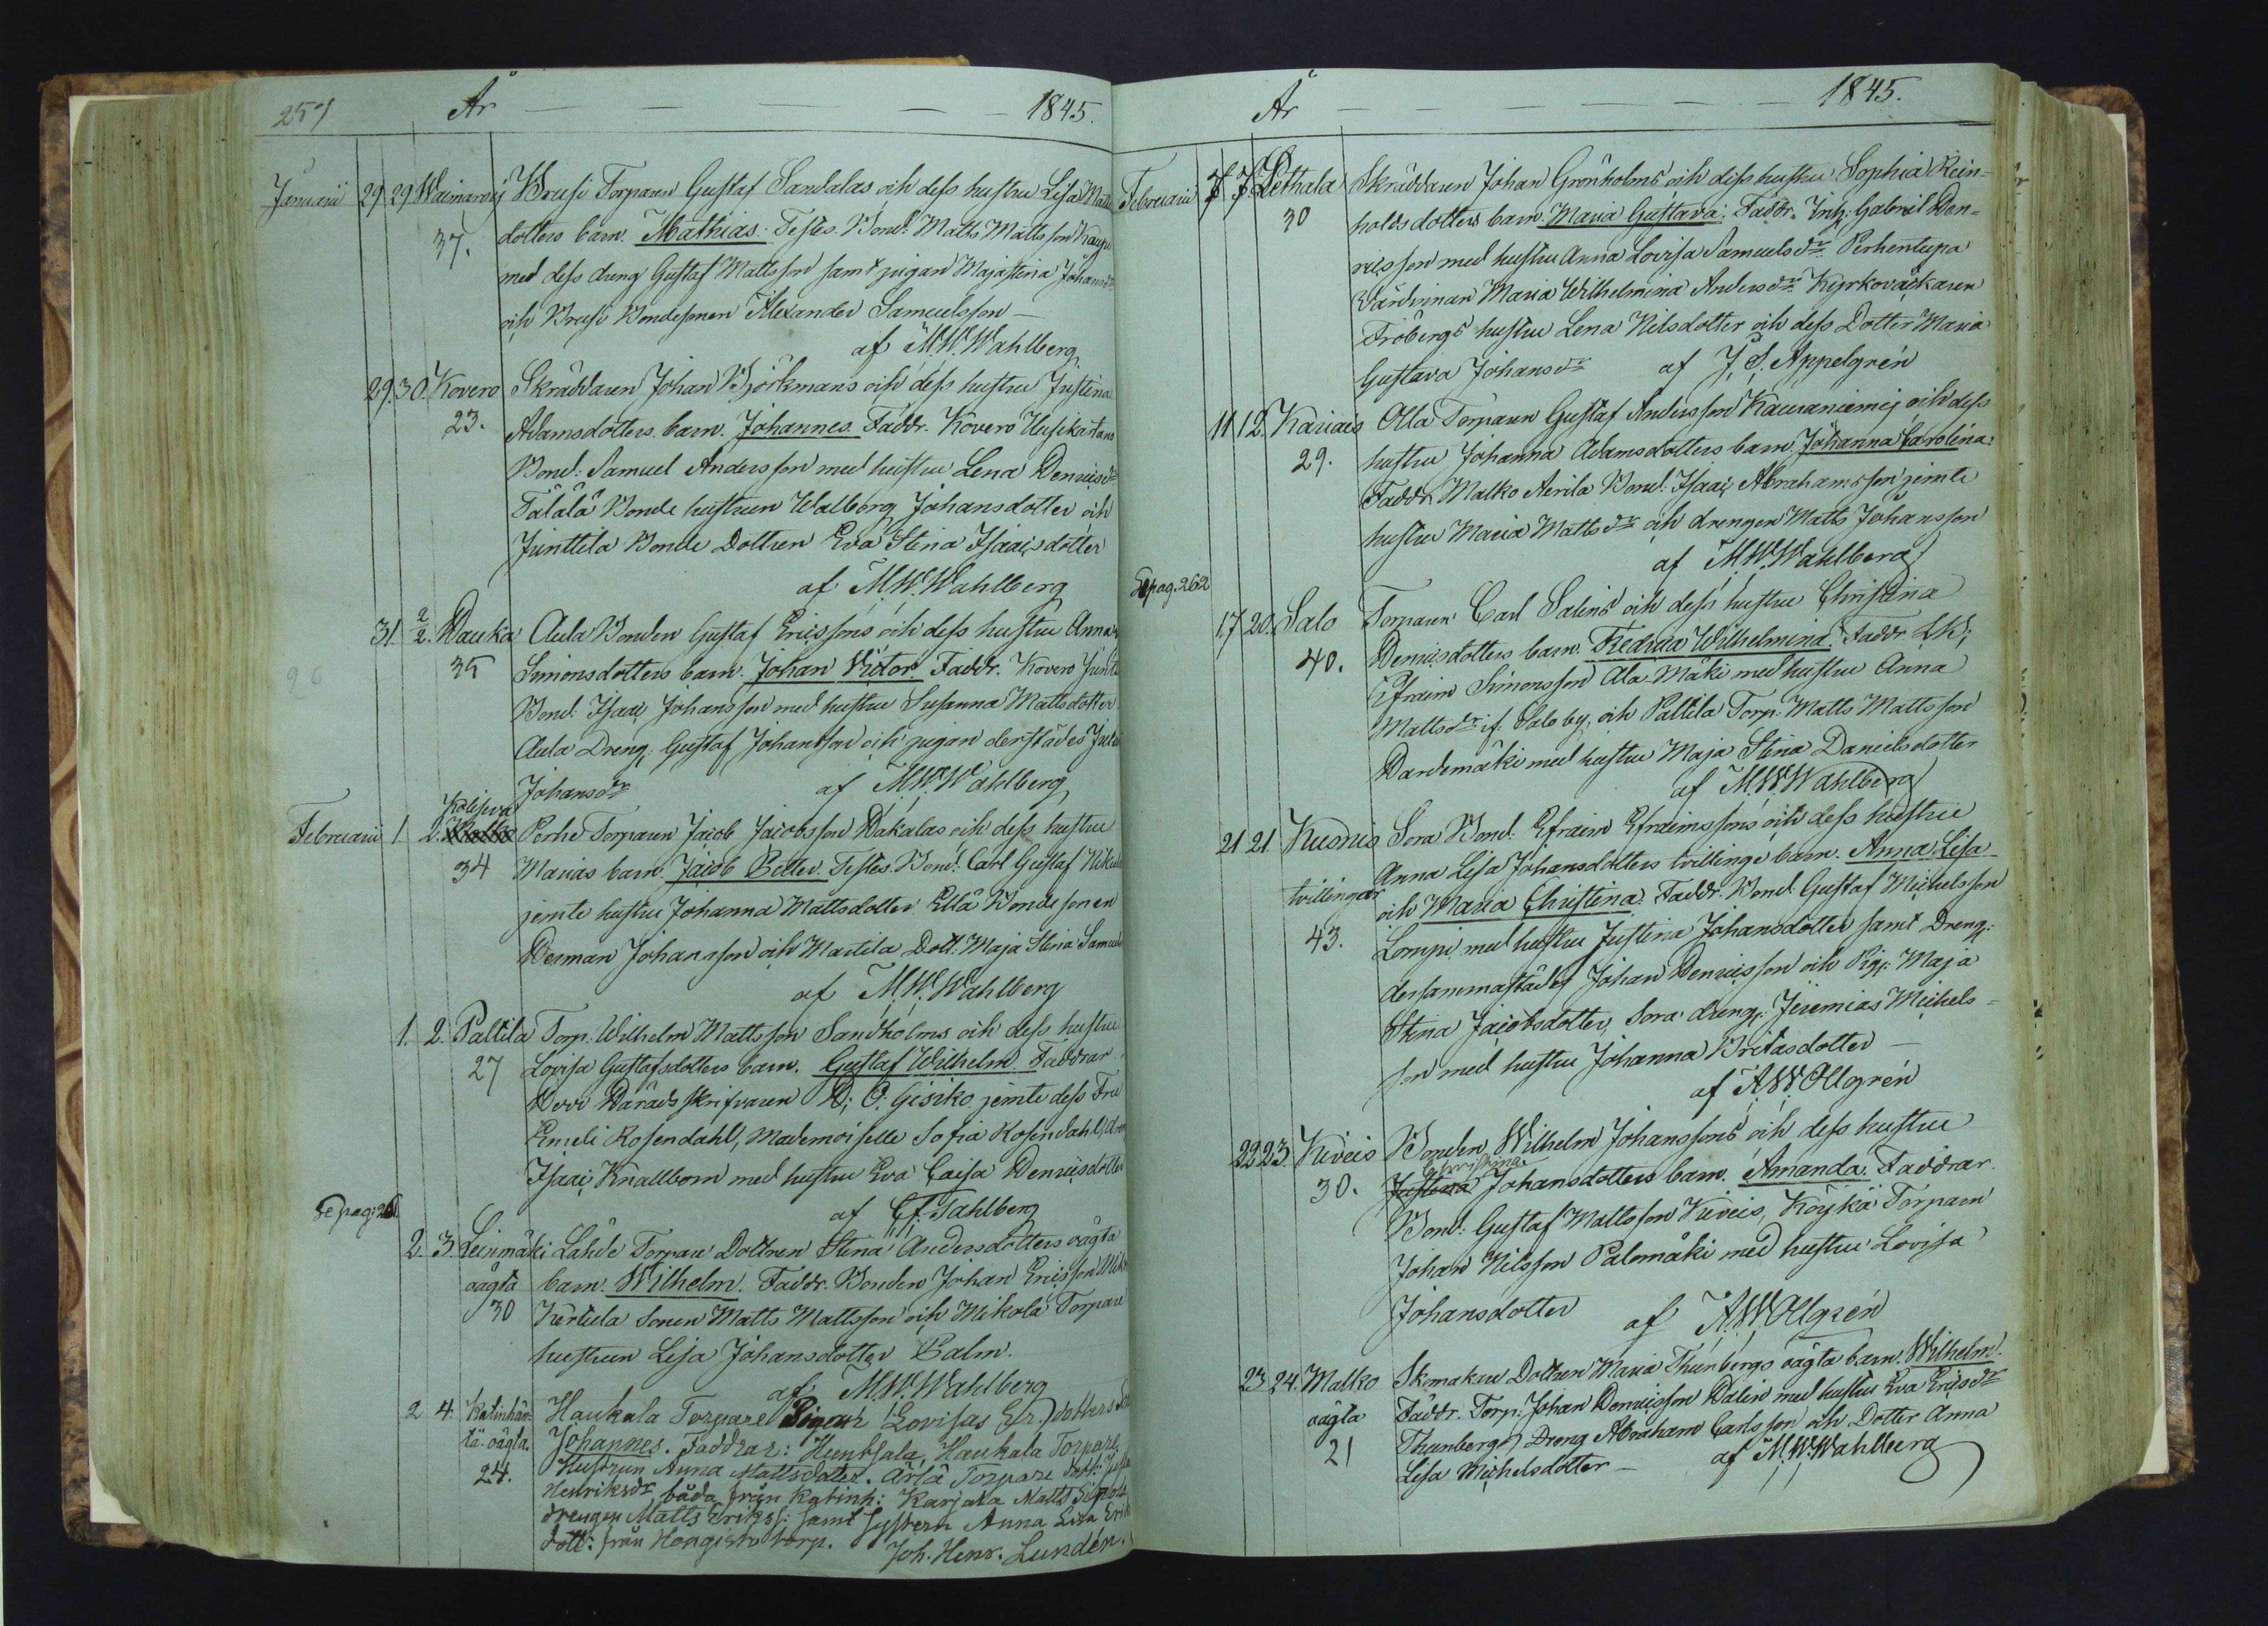 257 År 1845.
Januarii 29 29 Waimaroij Brusi Torparen Gustaf Sandalas och dess hustru Lisa Matts
37. dotters barn. Mathias. Testes. Bond: Matts Mattsson
med dess dreng Gustaf Mattsson samt pigan Majastina Johansdr
och Brusi Bondesonen Alexander Samuelsson –
af M.W. Wahlberg
29. 30. Kovero Skräddaren Johan Björkmans och dess hustru Justina
23. Adamsdotters barn. Johannes Faddr. Kovero Uusikartano
Bond: Samuel Andersson med hustru Lena Henricsdr
Tälälä Bonde hustrun Walborg Johansdotter och
Junttila Bonde Dottren Eva Stina Isaacsdotter
af M.W. Wahlberg
31. 2/2. Hauka Aula Bonden Gustaf Ericssons och dess hustru Anna
35 Simonsdotters barn. Johan Victor. Faddr. Kovero
Bond: Isaac Johansson med hustru Susanna Mattsdotter
Aula Dreng: Gustaf Johansson och pigan derstädes
Johansdr af M.W. Wahlberg
Februarii 1. 2. Perhe Torparen Jacob Jacobsson Hakalas och dess hustru
34 Marias barn. Jacob Petter. Testes. Bond: Carl Gustaf
jemte hustru Johanna Mattsdotter Ellä Bondesonen
Herman Johansson och Martila Dott: Maja Stina Samuels
af M.W. Wahlberg
1. 2. Paltila Torp: Wilhelm Mattsson Sandholms och dess hustru
27 Lovisa Gustafsdotters barn. Gustaf Wilhelm. Faddrar
Herr Häradsskrifvaren H: O: Gisiko jemte dess Fru
Emeli Rosendahl, Mademoiselle Sofia Rosendahl,
Isaac Knallbom med hustru Eva Caisa Henricsdotter
Se pag: af C.F. Tahlberg
2. 3. Leinmäki Lähde Torpare Dottren Stina Andersdotters oägta
oägta barn. Wilhelm. Faddr. Bonden Johan Ericsson
30 Kertula sonen Matts Mattsson och Mikola Torpare
hustrun Lisa Johansdotter Palm.
af M.W. Wahlberg
2 4. Katinhän- Haukala Torpare Pigan Lovisas Er. dotters
tä. oägta. Johannes. Faddrar: Huntsala, Haukala Torpare
24. Hustrun Anna Mattsdotter. Ärlä Torpare dott:
Henriksdr båda från Katinh: Karjala Matts
drengen Matts Eriks: samt Systern Anna Lisa
dott: från Hongisto torp. Joh. Henr. Lundén.
År 1845.
Februarii 7 7. Lethala Skräddaren Johan Grönholms och dess hustru Sophia Rein-
30 holdsdotters barn. Maria Gustava. Faddr. Inh: Gabriel Hen-
ricsson med hustru Anna Lovisa Samuelsdr Perhentupa
Värdinnan Maria Wilhelmina Andersdr Kyrkoväcktaren
Fröbergs hustru Lena Nilsdotter och dess Dotter Maria
Gustava Johansdr af J. S. Appelgrén
11 12. Kariais Olla Torparen Gustaf Andersson Kauraniemis och dess
29. hustru Johanna Adamsdotters barn Johanna Carolina.
Faddr. Malko Aerila Bond: Isaac Abrahamsson jemte
hustru Maria Mattsdr och drengen Matts Johansson
af M.W. Wahlberg
Se pag. 262
17 20. Salo Torparen Carl Salins och dess hustru Christina
40. Henricsdotters barn. Fredrica Wilhelmina. Faddr.
Efraim Simonsson Ala Mäki med hustru Anna
Mattsdr if: Salo by, och Paltila Torp: Matts Mattsson
Hardemäki med hustru Maja Stina Danielsdotter
af M.W. Wahlberg
21 21 Kusnis Sora Bond: Efraim Efraimssons och dess hustru
Anna Lisa Johansdotters tvillinge barn. Anna Lisa
tvillingar och Maria Christina. Faddr. Bond: Gustaf Michelsson
43. Lompi, med hustru Justina Johansdotter samt Dreng:
dersammastädes Johan Henricsson och Pig: Maja
Stina Jacobsdotter, Sora dreng: Jeremias Michels-
son med hustru Johanna Britasdotter –
af A.W. Ollgrén
22 23. Kiveis Bonden Wilhelm Johanssons och dess hustru
Christina
30. Justina Johansdotters barn. Amanda. Faddrar
Bond: Gustaf Mattsson Kiveis, Köykä Torparen
Johan Nilsson Palomäki med hustru Lovisa
Johansdotter af A.W. Ollgrén
23 24. Malko Skomakare Dottren Maria Thunbergs oägta barn. Wilhelm.
oägta Faddr. Torp: Johan Henricsson Dalin med hustru Eva Ericsdr
21 Thunbergs Dreng Abraham Carlsson och Dotter Anna
Lisa Michelsdotter – af M.W. Wahlberg